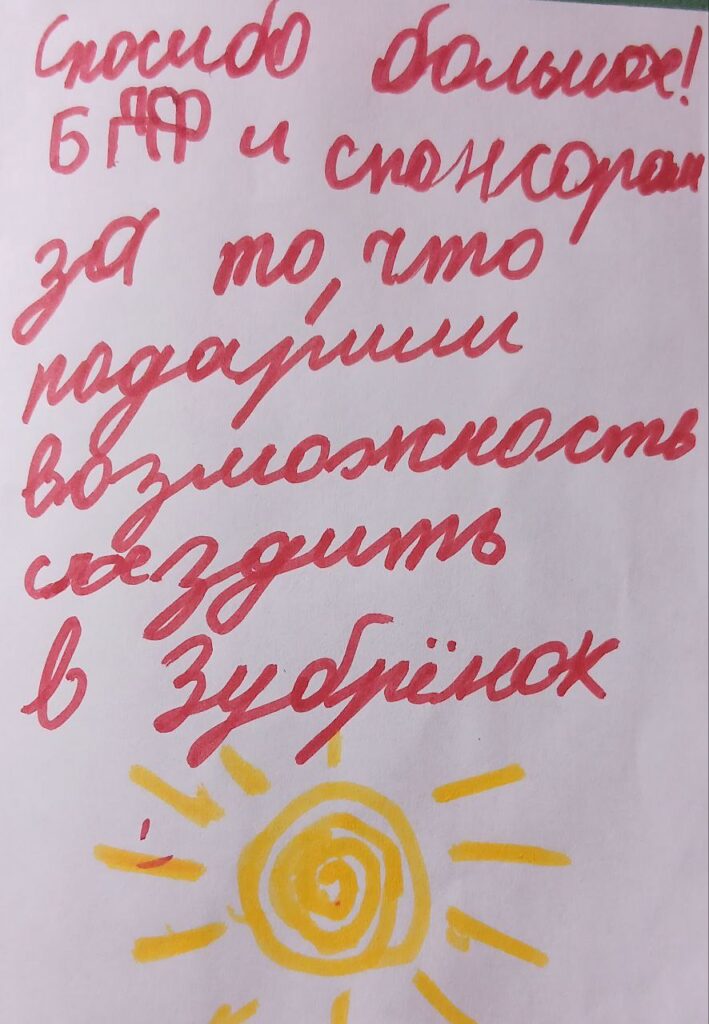 Спасибо большое!
БДФ и спонсорам
за то, что
подарили
возможность
съездить
в Зубрёнок